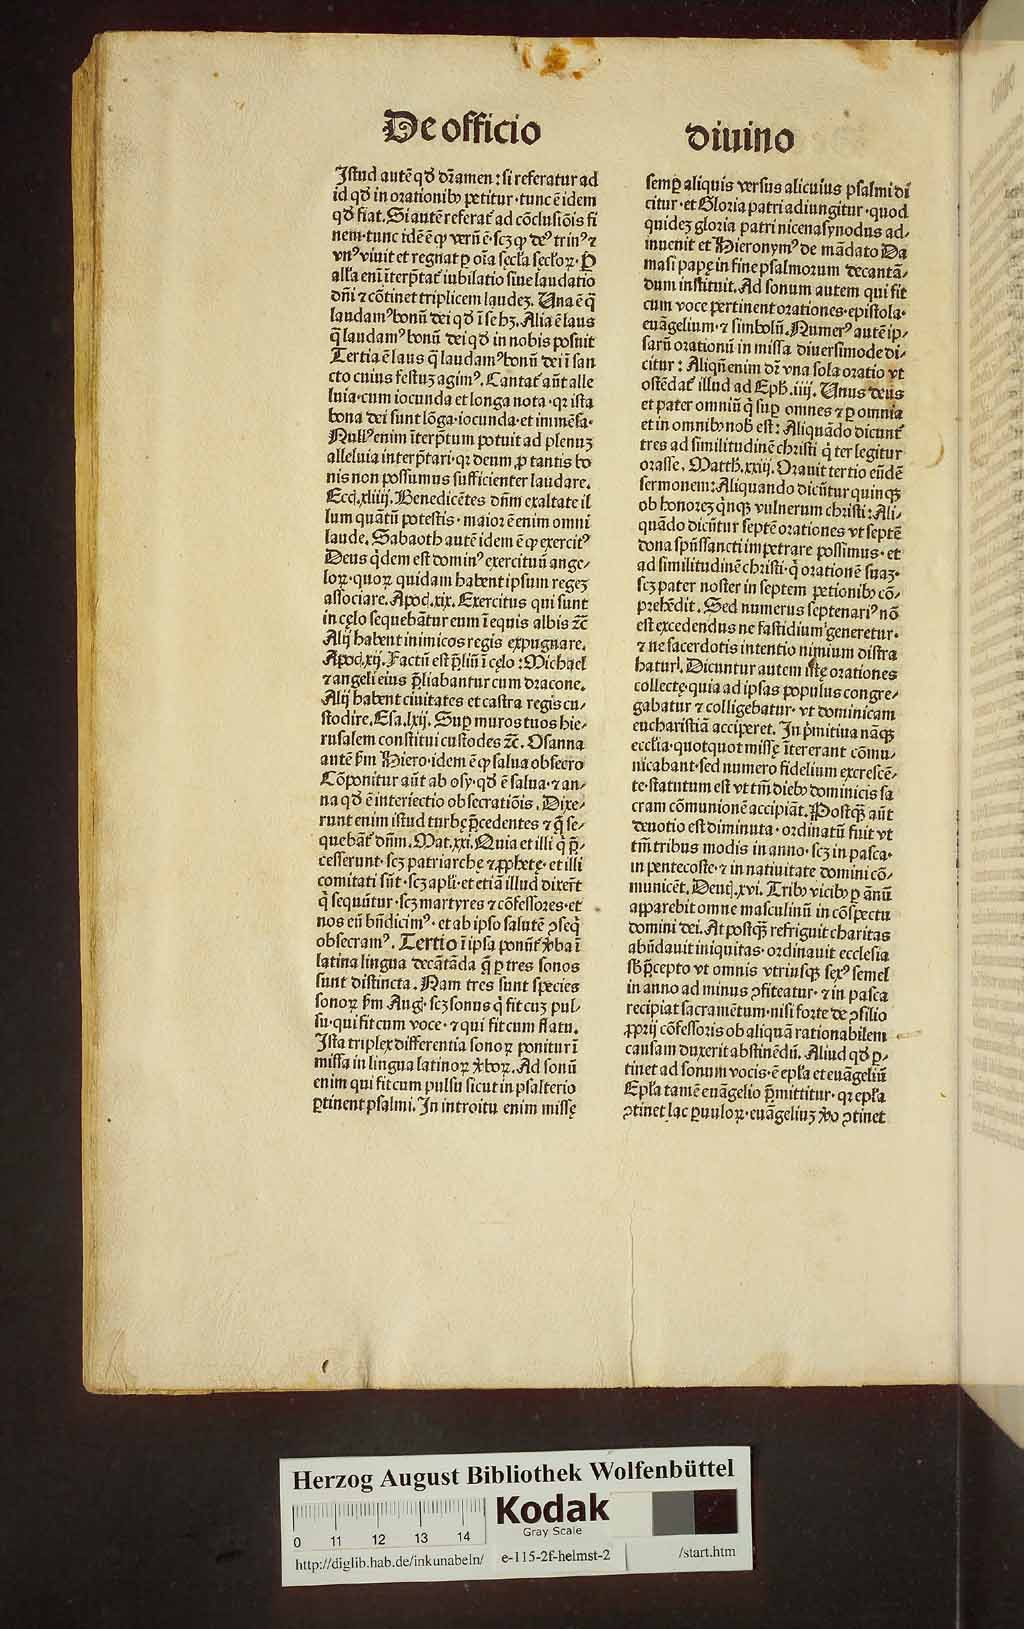 De officio
diuino
Istud autē qd̕ dr̄ amen : si referatur ad
id qd̕ in orationibꝰ petitur · tunc ē idem
qd̕ fiat. Si autē referat̕ ad cōclusiōis fi
nem · tunc idē ē qp verū ē · scꝫ qp deꝰ trinꝰ ⁊
vnꝰ viuit et regnat ꝑ oīa secl̕a secl̕oꝝ · P̲
all̕a enī īterp̄tat̕ iubilatio siue laudatio
dn̄i ⁊ cōtinet triplicem laudeꝫ. Una ē q̄
laudamꝰ bonū dei qd̕ ī se hꝫ. Alia ē laus
q̄ laudamꝰ bonū dei qd̕ in nobis posuit
Tertia ē laus q̄ laudamꝰ bonū dei ī san
cto cuius festuꝫ agimꝰ. Cantat̕ aūt alle
luia · cum iocunda et longa nota · qꝛ ista
bona dei sunt lōga · iocunda · et immēsa ·
Nullꝰ enim īterp̄tum potuit ad plenuꝫ
alleluia interp̄tari · qꝛ deum ꝓ tantis bo
nis non possumus sufficienter laudare.
Ecci̕. xliiij. Benedicētes dn̄m exaltate il
lum quātū potestis · maior ē enim omni
laude. Sabaoth autē idem ē qp exercitꝰ
Deus q̇dem est dominꝰ exercituū ange⸗
loꝝ · quoꝝ quidam habent ipsum regeꝫ
associare. Apoc̕. xix. Exercitus qui sunt
in cęlo sequebāt̕ur eum ī equis albis ⁊c̄
Alij habent inimicos regis expugnare.
Apoc̕. xij. Factū est p̄liū ī cęlo : Michael
⁊ angeli eius p̄liabantur cum dracone.
Alij habent ciuitates et castra regis cu⸗
stodire. Esa. lxij. Suꝑ muros tuos hie⸗
rusalem constitui custodes ⁊c̄. Osanna
autē ẜm Hiero · idem ē qp salua obsecro
Cōponitur aūt ab osy · qd̕ ē salua · ⁊ an⸗
na qd̕ ē interiectio obsecratiōis. Dixe⸗
runt enim istud turbę p̄cedentes ⁊ q̄ se⸗
quebāt̕ dn̄m. Mat. xxi. Quia et illi q̇ p̄⸗
cesserunt · scꝫ patriarchę ⁊ ꝓphetę · et illi
comitati sūt · scꝫ apl̕i · et etiā illud dixer̄t
q̇ sequūtur · scꝫ martyres ⁊ cōfessores · et
nos eū bn̄dicimꝰ · et ab ipso salutē ꝯseq̇
obsecramꝰ. Tertio ī ipsa ponūt̕ v̕ba ī
latina lingua decātāda q̄ ꝑ tres sonos
sunt distincta. Nam tres sunt species
sonoꝝ ẜm Aug̕. scꝫ sonus q̇ fit cuꝫ pul⸗
su · qui fit cum voce · ⁊ qui fit cum flatu.
Ista triplex differentia sonoꝝ ponitur ī
missa in lingua latinoꝝ v̕boꝝ. Ad sonū
enim qui fit cum pulsu sicut in psalterio
ꝑtinent psalmi. In introitu enim missę
semꝑ aliquis versus alicuius psalmi di
citur · et Gloria patri adiungitur · quod
quideꝫ gloria patri nicena synodus ad⸗
inuenit et Hieronymꝰ de mādato Da
masi papę in fine psalmorum decantā⸗
dum instituit. Ad sonum autem qui fit
cum voce pertinent orationes · epistola ·
euāgelium · ⁊ simbolū. Numerꝰ autē ip⸗
sarū orationū in missa diuersimode di⸗
citur : Aliqn̄ enim dr̄ vna sola oratio vt
ostēdat̕ illud ad Eph. iiij. Unus deus
et pater omniū q̇ suꝑ omnes ⁊ ꝑ omnia
et in omnibꝰ nob̕ est : Aliquādo dicunt̕
tres ad similitudinē christi q̇ ter legitur
orasse. Matth. xxiij. Orauit tertio eūdē
sermonem : Aliquando dicūtur quinqꝫ
ob honoreꝫ q̇nqꝫ vulnerum christi : Ali⸗
quādo dicūtur septē orationes vt septē
dona spūssancti impetrare possimus · et
ad similitudinē christi · q̇ orationē suaꝫ ·
scꝫ pater noster in septem petionibꝰ cō⸗
prehēdit. Sed numerus septenariꝰ nō
est excedendus ne fastidium generetur ·
⁊ ne sacerdotis intentio nimium distra
hatur. Dicuntur autem istę orationes
collectę quia ad ipsas populus congre⸗
gabatur ⁊ colligebatur · vt dominicam
eucharistiā acciperet. In ṗmitiua nāqꝫ
eccl̕ia · quotquot missę īterērant cōmu⸗
nicabant · sed numero fidelium excrescē⸗
te · statutum est vt tm̄ diebꝰ dominicis sa
cram cōmunionē accipiāt. Postqꝫ aūt
deuotio est diminuta · ordinatū fuit vt
tm̄ tribus modis in anno · scꝫ in pasca ·
in pentecoste · ⁊ in natiuitate domini cō⸗
municēt. Deut̕. xvi. Tribꝰ vicibꝰ ꝑ ānū
apparebit omne masculinū in cōspectu
domini dei. At postqꝫ refriguit charitas
abūdauit iniquitas · ordinauit ecclesia
sb̕ p̄cepto vt omnis vtriusqꝫ sexꝰ semel
in anno ad minus ꝯfiteatur · ⁊ in pasca
recipiat sacramētum · nisi forte de ꝯsilio
ꝓprij cōfessoris ob aliquā rationabilem
causam duxerit abstinēdū. Aliud qd̕ ꝑ⸗
tinet ad sonum vocis · ē epl̕a et euāgeliū
Epl̕a tamē euāgelio p̄mittitur · qꝛ epl̕a
ꝯtinet lac ꝑuuloꝝ · euāgeliuꝫ v̕o ꝯtinet
Herzog August Bibliothek Wolfenbüttel
Kodak
Gray Scale
0 11 12 13 14
http://diglib.hab.de/inkunabeln/ e-115-2f-helmst-2 /start.htm